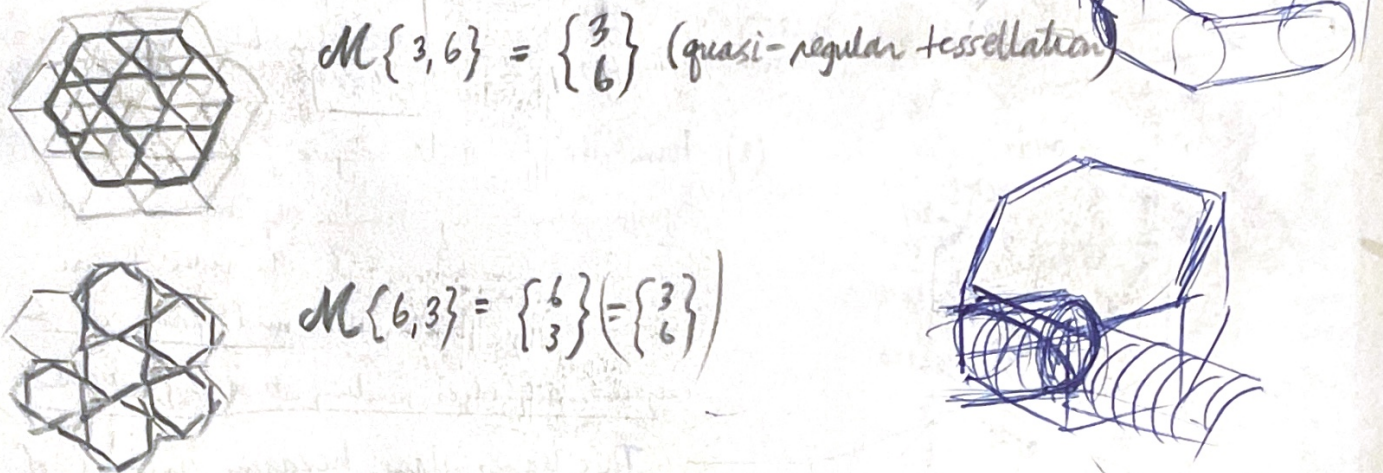 ℳ{3,6} = {3 6} (quasi-regular tessellation)
ℳ{6,3} = {6 3} (= {3 6})